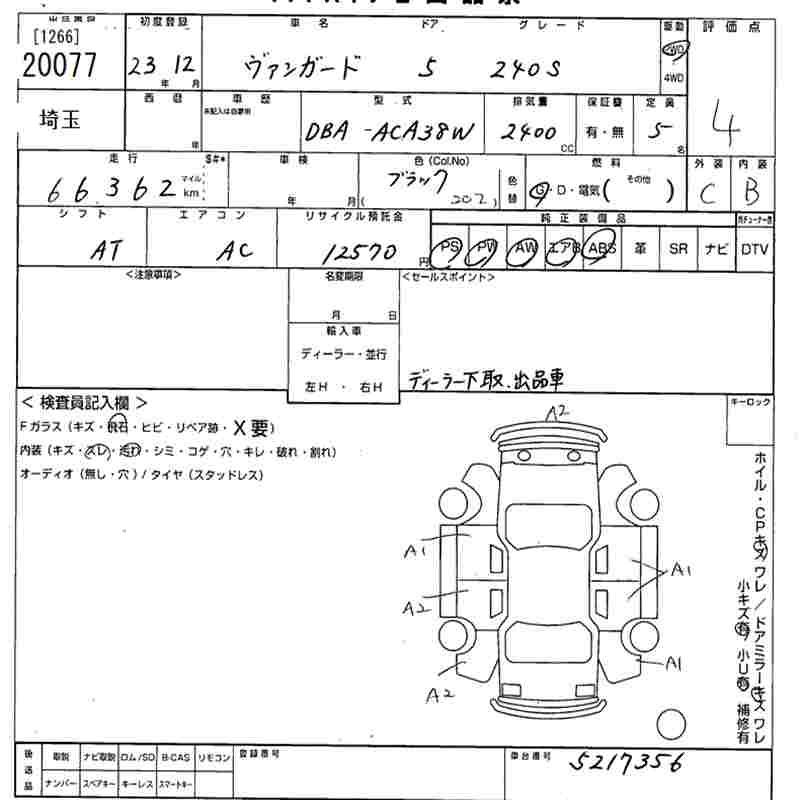 [1266]
初度登録 車名 ドア グレード 駆動 評価点
20077 23 12 ヴァンガード 5 240S 2WD
年 月 4WD
西暦 車歴 型式 排気量 保証書 定員
未記入は自家用
埼玉 DBA-ACA38W 2400 有・無 5 4
年 CC 名
走行 $#* 車検 色(Col.No) 燃料 外装 内装
66362 マイル km 年 月 ブラック ( 202 ) 色替 G・D・電気( その他 ) C B
シフト エアコン リサイクル預託金 純正装備品
AT AC 12570 円 PS PW AW エアB ABS 革 SR ナビ DTV
<注意事項> 名変期限 <セールスポイント>
月 日
輸入車
ディーラー・並行
左H ・ 右H ディーラー下取、出品車
< 検査員記入欄 > キーロック
Fガラス(キズ・飛石・ヒビ・リペア跡・X要)
内装(キズ・スレ・汚れ・シミ・コゲ・穴・キレ・破れ・割れ)
オーディオ(無し・穴)/タイヤ(スタッドレス)
A2
A1
A1
A2
A1
A2
ホイル・CPキズワレ/ドアミラーキズワレ
小キズ有 小U有 補修有
後送品 取説 ナビ取説 ロム/SD B-CAS リモコン 登録番号 車台番号 5217356
ナンバー スペアキー キーレス スマートキー